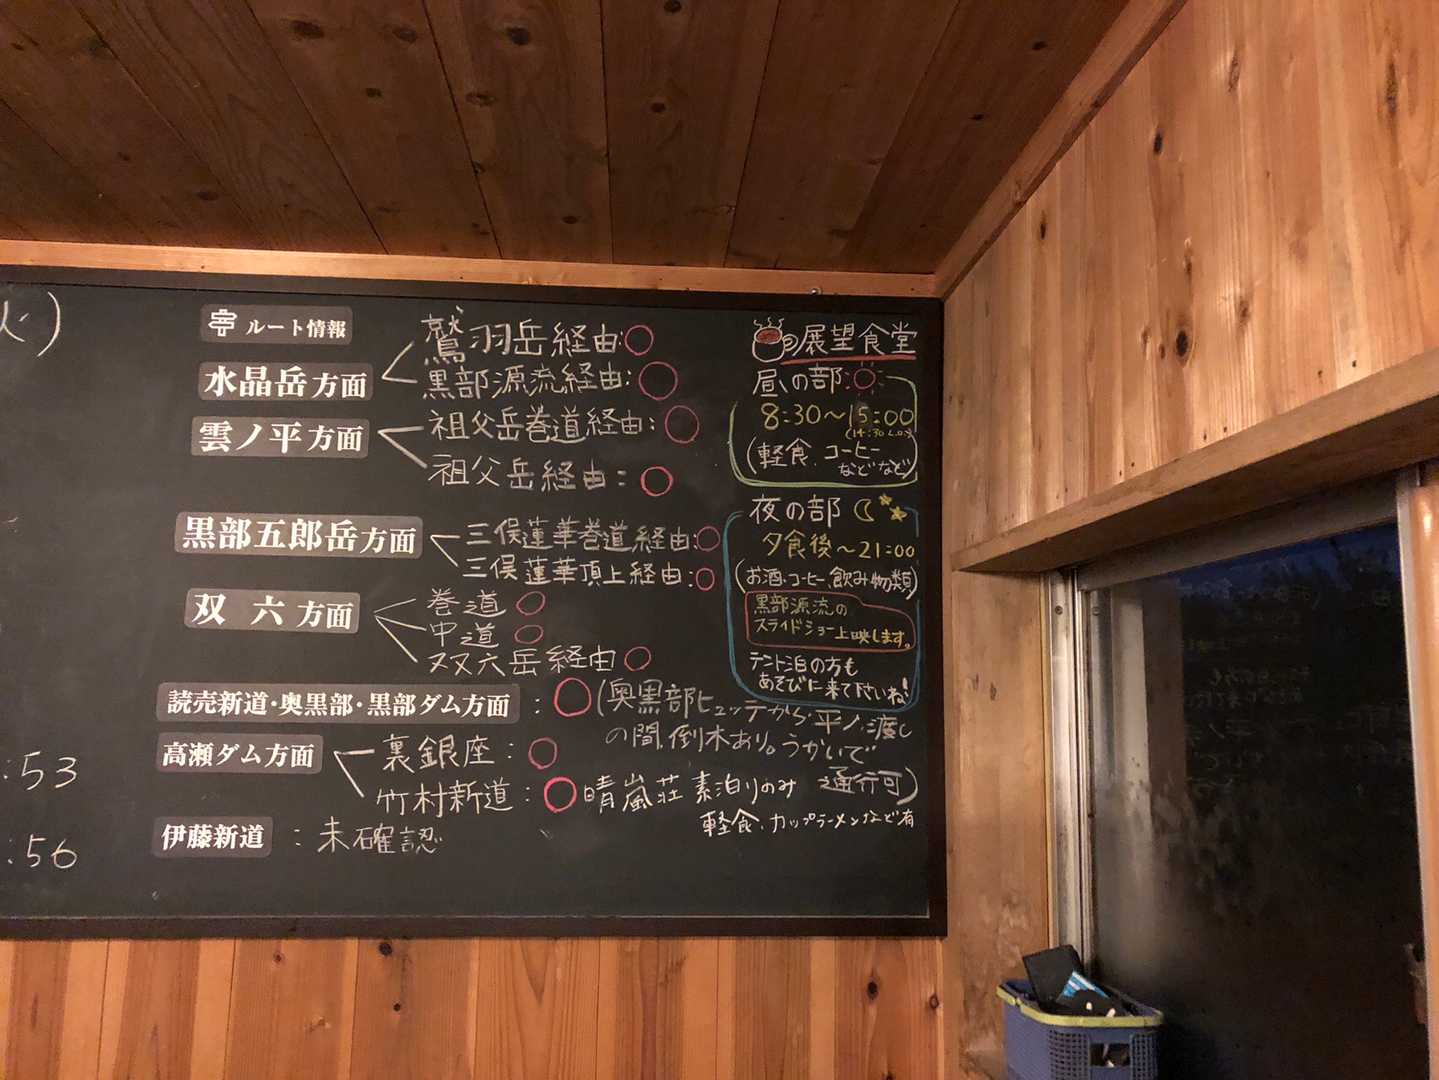 火)
:53
:56
ルート情報
水晶岳方面
鷲羽岳経由:○
黒部源流経由:○
雲ノ平方面
祖父岳巻道経由:○
祖父岳経由:○
黒部五郎岳方面
三俣蓮華巻道経由:○
三俣蓮華頂上経由:○
双六方面
巻道○
中道○
双六岳経由○
読売新道・奥黒部・黒部ダム方面:○(奥黒部ヒュッテから平ノ渡し
の間、倒木あり。うかいで
通行可)
高瀬ダム方面
裏銀座:○
竹村新道:○晴嵐荘 素泊りのみ
軽食、カップラーメンなど有
伊藤新道:未確認
展望食堂
昼の部
8:30～15:00
(14:30 L.O.)
(軽食、コーヒー
などなど)
夜の部
夕食後～21:00
(お酒、コーヒー、飲み物類)
黒部源流の
スライドショー上映します。
テント泊の方も
あそびに来て下さいね!